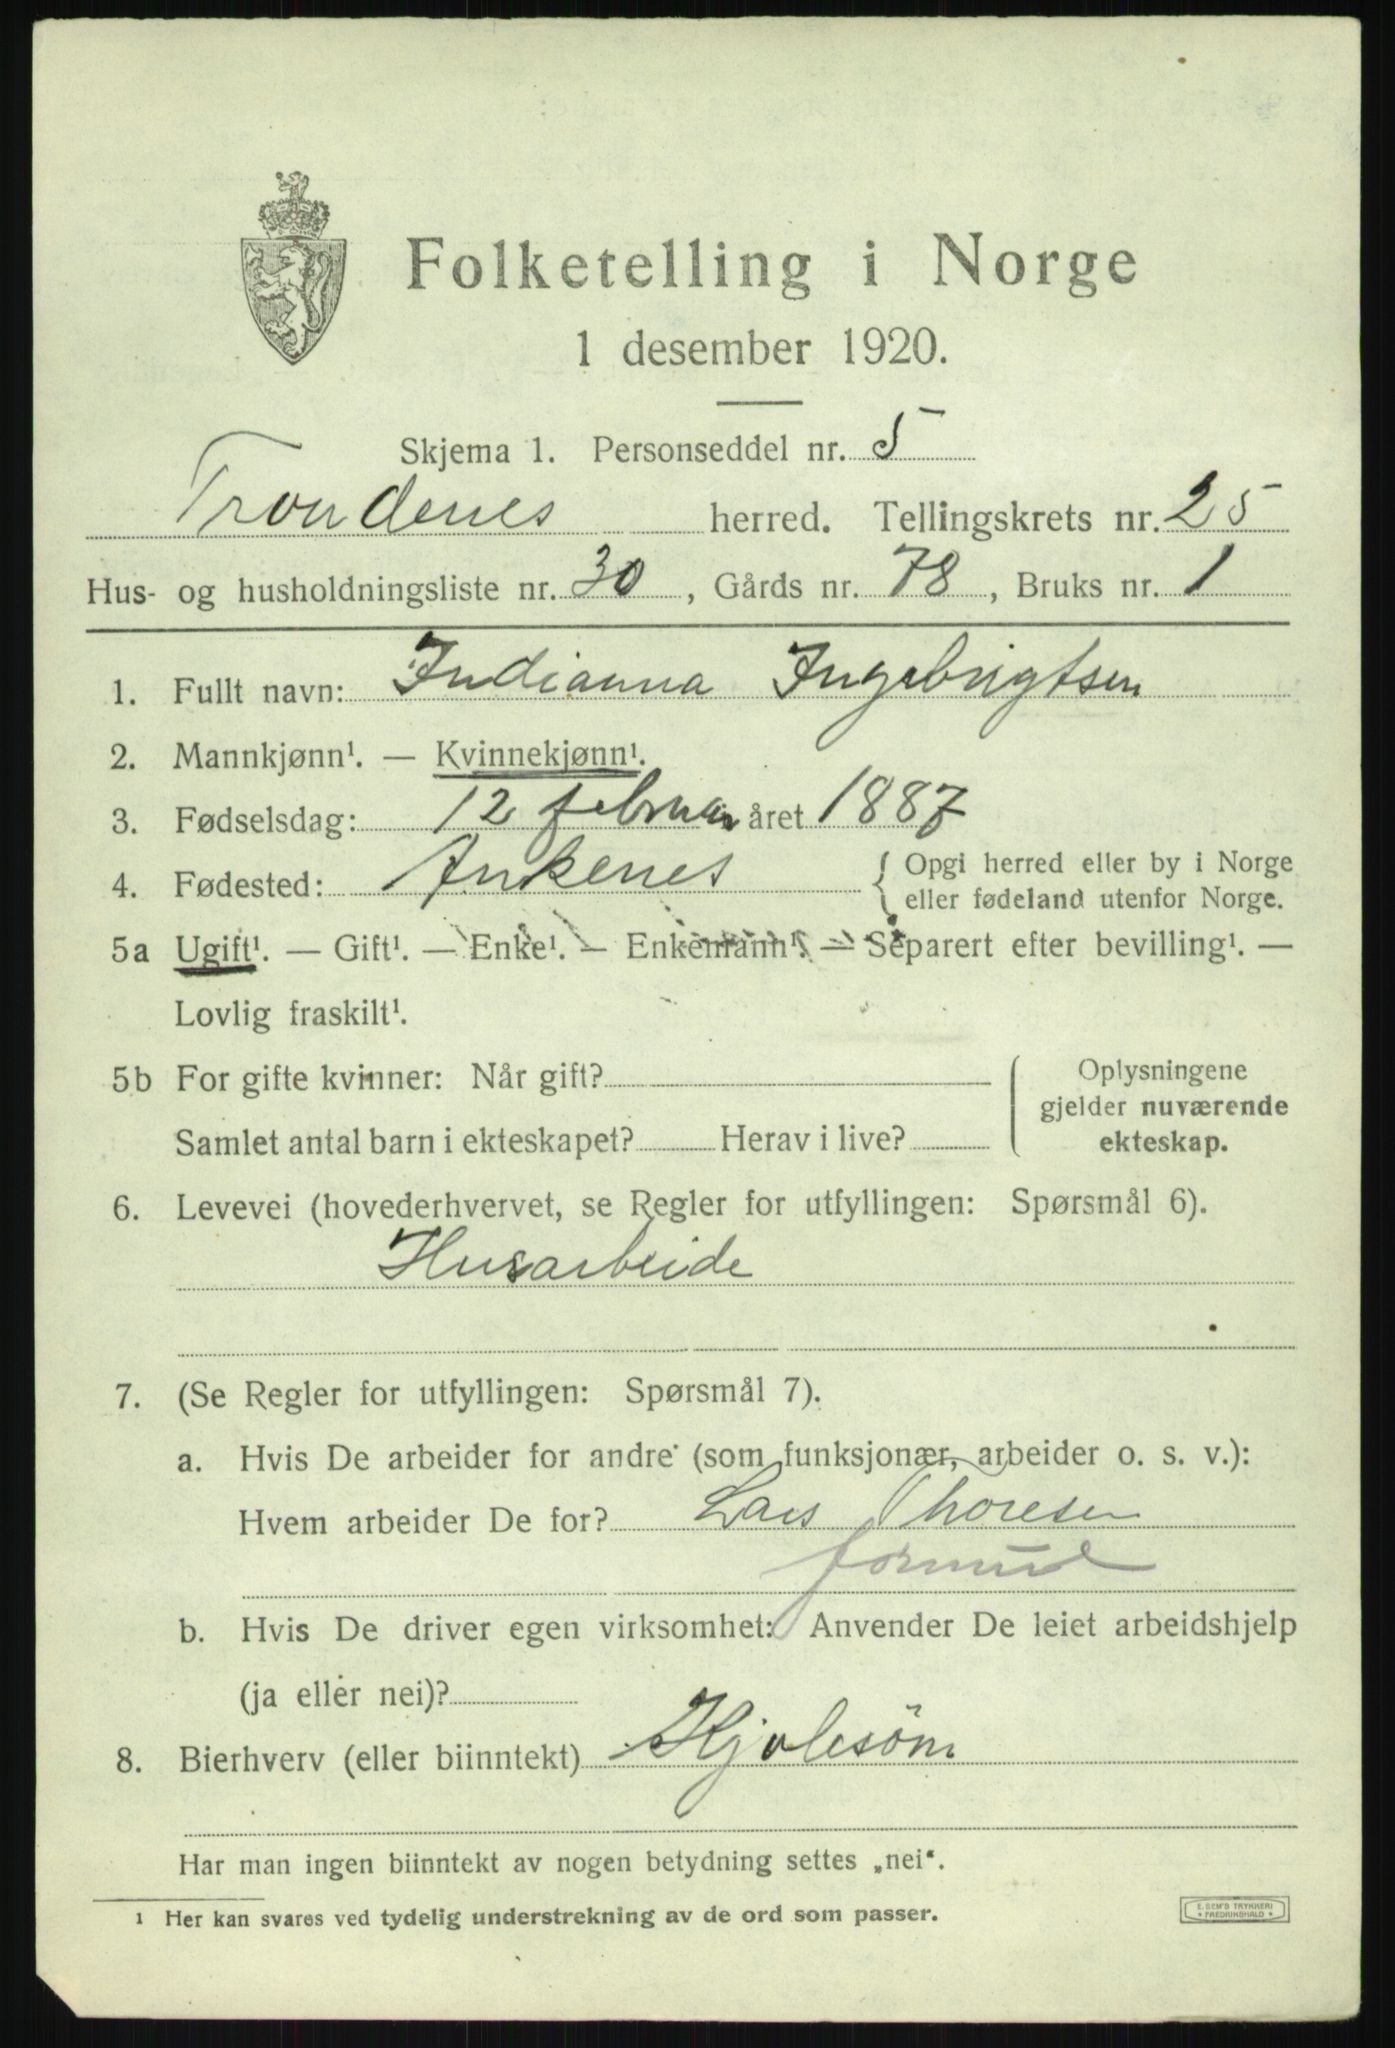 Folketelling i Norge
1 desember 1920.
Skjema 1. Personseddel nr. 5
Trondenes herred. Tellingskrets nr. 25
Hus- og husholdningsliste nr. 30, Gårds nr. 78, Bruks nr. 1
1. Fullt navn: Indianna Ingebrigtsen
2. Mannkjønn¹. — Kvinnekjønn¹.
3. Fødselsdag: 12 februar året 1887
4. Fødested: Ankenes { Opgi herred eller by i Norge
eller fødeland utenfor Norge.
5a Ugift¹. — Gift¹. — Enke¹. — Enkemann¹. — Separert efter bevilling¹. —
Lovlig fraskilt¹.
5b For gifte kvinner: Når gift? Oplysningene
gjelder nuværende
Samlet antal barn i ekteskapet? Herav i live? ekteskap.
6. Levevei (hovederhvervet, se Regler for utfyllingen: Spørsmål 6).
Husarbeide
7. (Se Regler for utfyllingen: Spørsmål 7).
a. Hvis De arbeider for andre (som funksjonær, arbeider o. s. v.):
Hvem arbeider De for? Lars Thoresen
b. Hvis De driver egen virksomhet: Anvender De leiet arbeidshjelp
(ja eller nei)?
8. Bierhverv (eller biinntekt) Kjolesöm
Har man ingen biinntekt av nogen betydning settes „nei“.
1 Her kan svares ved tydelig understrekning av de ord som passer.
E. SEM'S TRYKKERI
* FREDRIKSHALD *